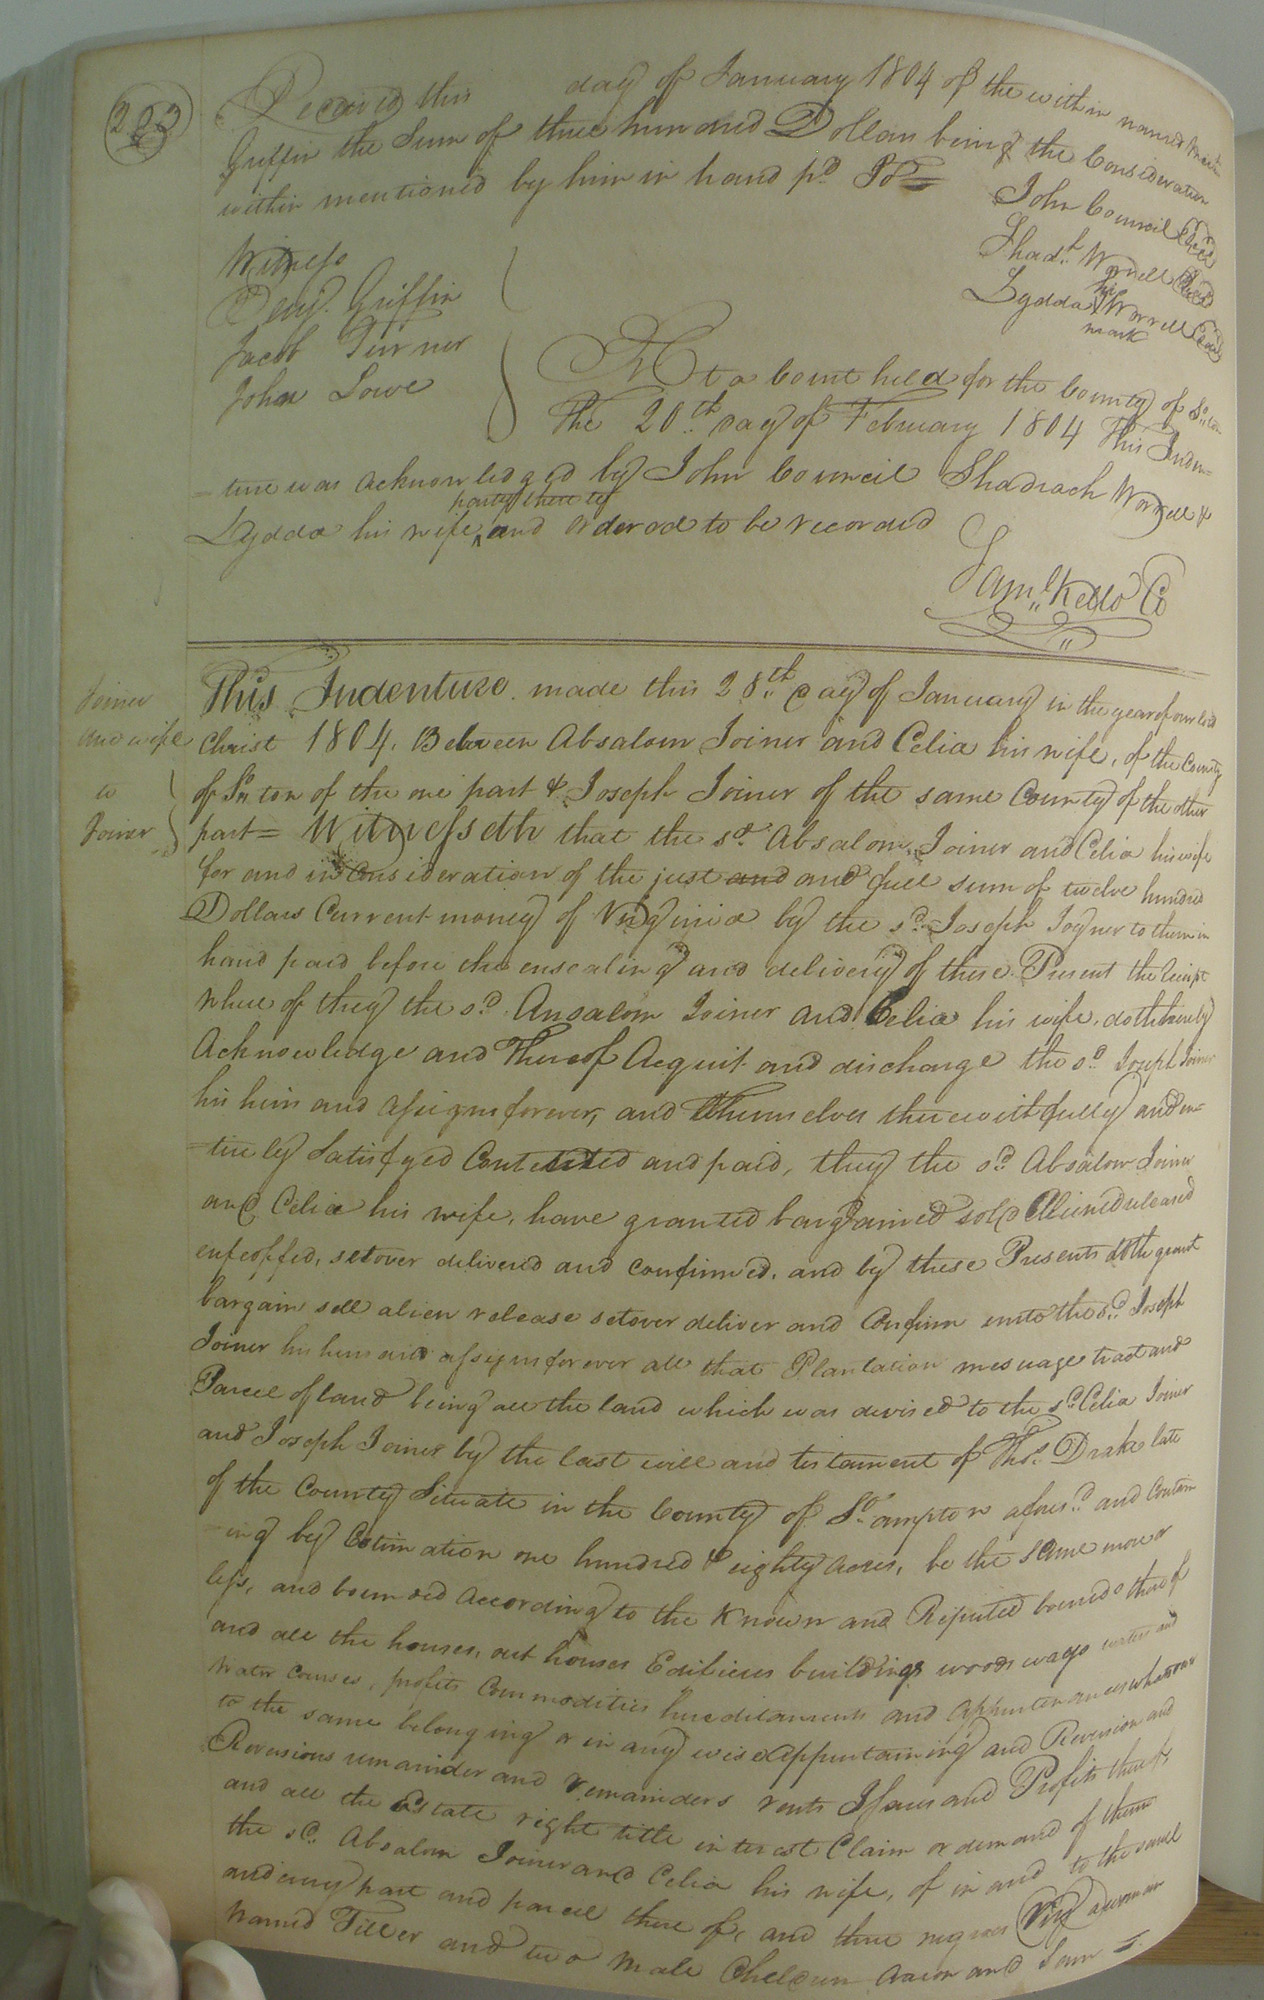 223
Received this day of January 1804 of the within named
Griffin the Sum of three hundred Dollars being the Consideration
within mentioned by him in hand pd
John Council Seal
Shadh Worrell Seal
Lydda Worrell Seal
mark
Witness
Benjn. Griffin
Jacob Turner
John Lowe
At a Court held for the County of
The 20th day of February 1804 This Inden=
=ture was acknowledged by John Council Shadrach Worrell &
party thereto
Lydda his wife ^ and ordered to be recorded
Saml Kello Co
Joiner
and wife
to
Joiner
This Indenture made this 28th day of January in the year of our lord
Christ 1804. Between Absalom Joiner and Celia his wife, of the County
of Sn ton of the one part & Joseph Joiner of the same County of the other
part= Witnesseth that the sd Absalom Joiner and Celia his wife
for and in Consideration of the just and and full sum of twelve hundred
Dollars Current money of Virginia by the sd Joseph Joyner to them in
hand paid before the ensealing and delivery of these Present the Receipt
where of they the sd Ansalom Joiner and Celia his wife, doth hereby
Acknowledge and Thereof Acquit and discharge the sd Joseph Joiner
his heirs and assigns forever, and themselves therewith fully and en=
=tirely Satisfyed Contented and paid, they the sd Absalom Joiner
and Celia his wife, have granted bargained sold Aliened released
enfeoffed, setover delivered and confirmed, and by these Presents doth grant
bargain sell alien release setover deliver and Confirm unto the sd Joseph
Joiner his heirs and assigns forever all that Plantation mesuage tract and
Parcel of land being all the land which was devised to the sd Celia Joiner
and Joseph Joiner by the last will and testament of Thos. Drake late
of the County Situate in the County of So.ampton aforesd and Contain
=ing by Estimation one hundred & eighty acres, be the same more or
less, and bounded according to the Known and Reputed bounds thereof
and all the houses, out houses Edificies buildings woods ways waters and
Water Courses, profits Commodities hereditaments and appurtenances whatsoever
to the same belonging or in any wise appurtaining and Reversion and
Reversions remainder and remainders rents Issues and Profits thereof,
and all the Estate right title interest Claim or demand of them
the sd Absalom Joiner and Celia his wife, of in and to the same
and every part and parcel there of, and three negroes Viz a woman
named Tiller and two male Children Aaron and Sam